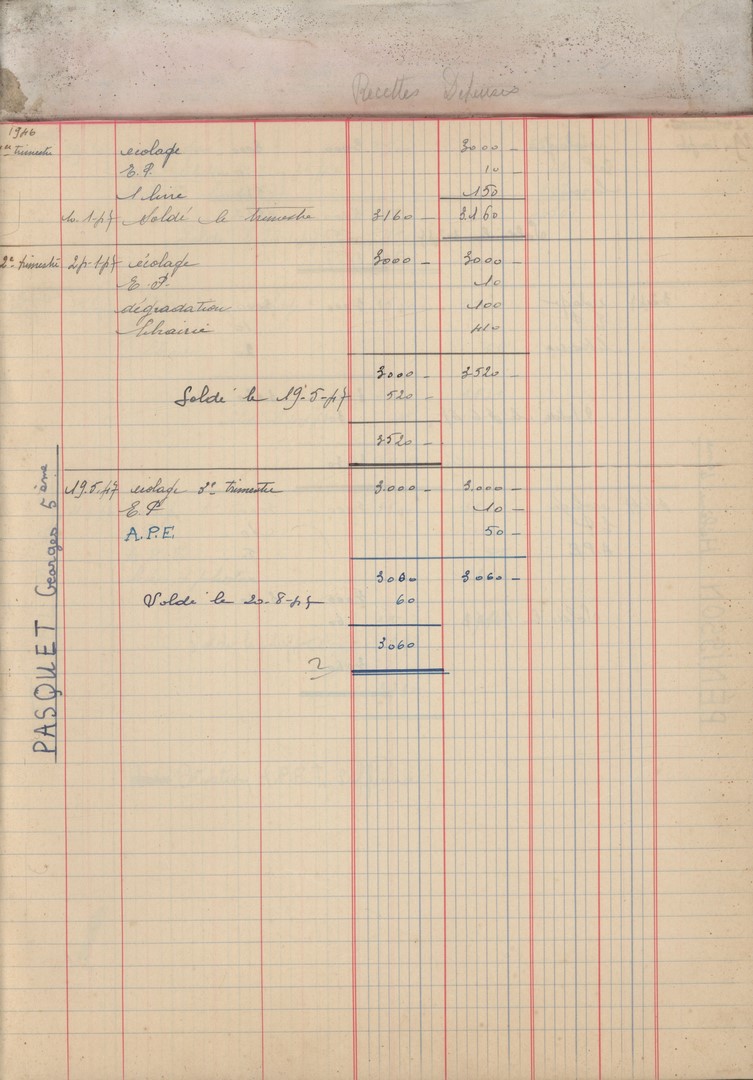 Recettes Dépenses
1946
1er trimestre écolage 3000 -
E.P. 10 -
1 livre 150
10. 1-47 Soldé le trimestre 3160 - 3160 -
2e trimestre 24-1-47 écolage 3000 - 3000 -
E.P. 10
dégradation 100
librairie 410
3000 - 3520 -
Soldé le 19-5-47 520 -
3520 -
19.5.47 écolage 3e trimestre 3.000 - 3.000 -
E.P. 10 -
A.P.E 50 -
3000 3060 -
Soldé le 20-8-47 60
3.060
PASQUET Georges 5ème